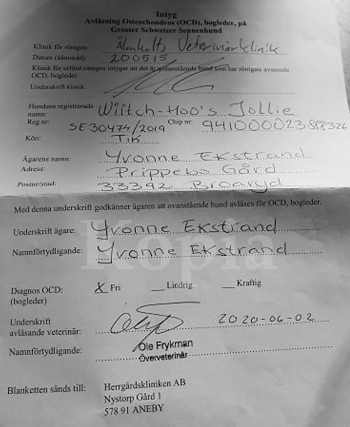 Intyg
Avläsning Osteochondros (OCD), bogleder, på
Grosser Schweizer Sennenhund
Klinik för röntgen: Älmhults Veterinärklinik
Datum (ååmmdd): 200515
Klinik för utförd röntgen intygar att det är
OCD, bogleder.
Underskrift klinik:
Hundens registrerade
namn: Wiitch-Hoo's Jollie
Reg nr: SE30474/2019 Chip nr: 941000023888326
Kön: Tik
Ägarens namn: Yvonne Ekstrand
Adress: Prippebo Gård
Postnr/stad: 33392 Broaryd
Med denna underskrift godkänner ägaren att ovanstående hund avläses för OCD, bogleder.
Underskrift ägare: Yvonne Ekstrand
Namnförtydligande: Yvonne Ekstrand
Kopia
Diagnos OCD: X Fri __ Lindrig __ Kraftig
(bogleder)
Underskrift
avläsande veterinär: 2020-06-02
Namnförtydligande: Ole Frykman
Överveterinär
Blanketten sänds till: Herrgårdskliniken AB
Nystorp Gård 1
578 91 ANEBY